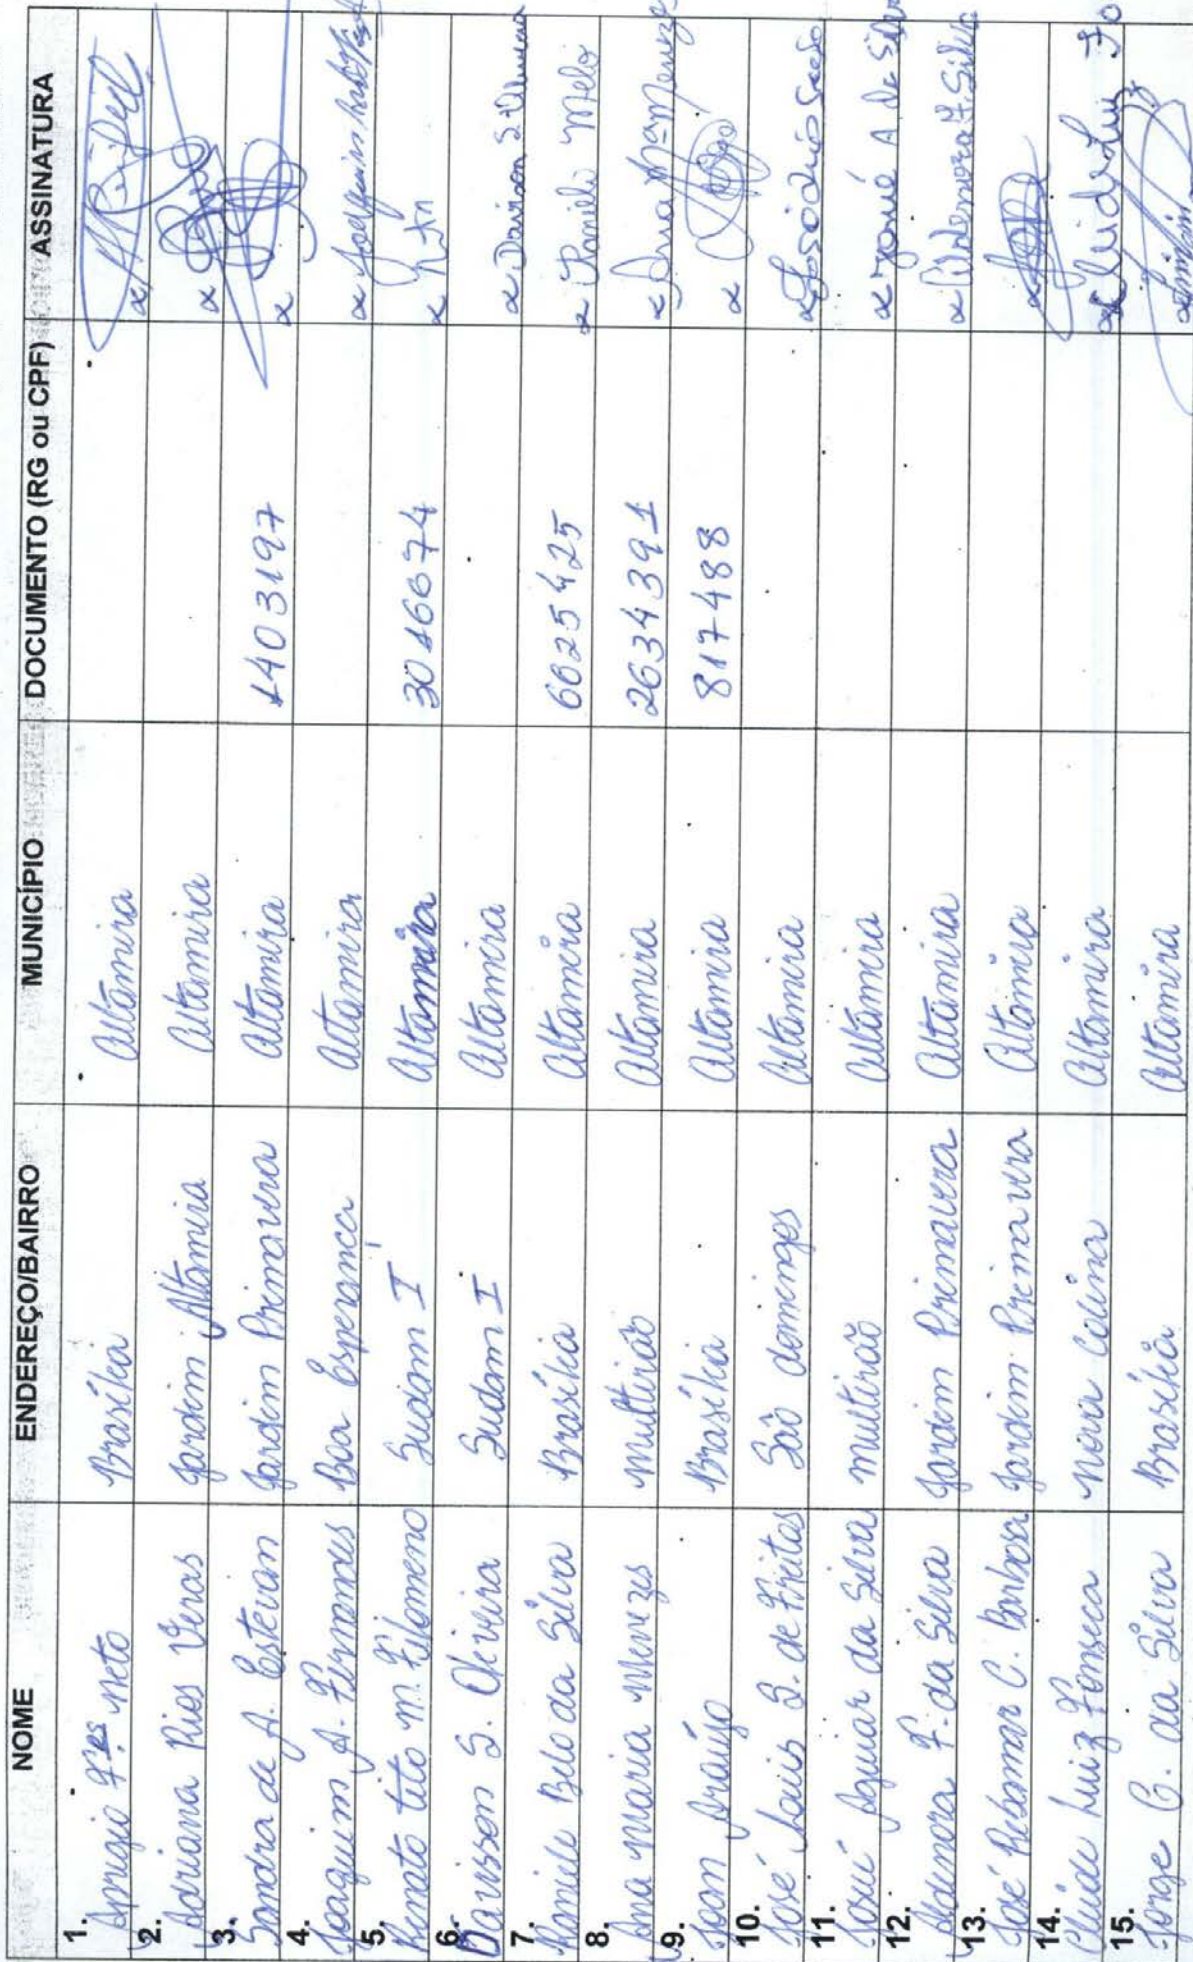 NOME ENDEREÇO/BAIRRO MUNICÍPIO DOCUMENTO (RG ou CPF) ASSINATURA
1. Aprigio Frs Neto Brasília Altamira
2. Adriana Rios Veras Jardim Altamira Altamira
3. Sandra de A. Estevan Jardim Primavera Altamira 1403197
4. Joaquim A. Fernandes Boa Esperança Altamira Joaquim
5. Renato tito M. Filomeno Sudam I Altamira 3016674
6. Davisson S. Oliveira Sudam I Altamira Davison S. Oliveira
7. Ramile Belo da Silva Brasília Altamira 6625425 Melo
8. Ana Maria Menezes Multirão Altamira 2634391 Ana Mª Menezes
9. Joan Araújo Brasília Altamira 817488
10. José Luis S. de Freitas São domingos Altamira
11. Josué Aguiar da Silva multirão Altamira A da Silva
12. Aldenora F. da Silva Jardim Primavera Altamira Aldenora F. Silva
13. José Ribamar C. Barbosa Jardim Primavera Altamira
14. Cleide Luiz Fonseca Nova Colina Altamira Cleide Luiz Fo
15. Jorge C. da Silva Brasília Altamira